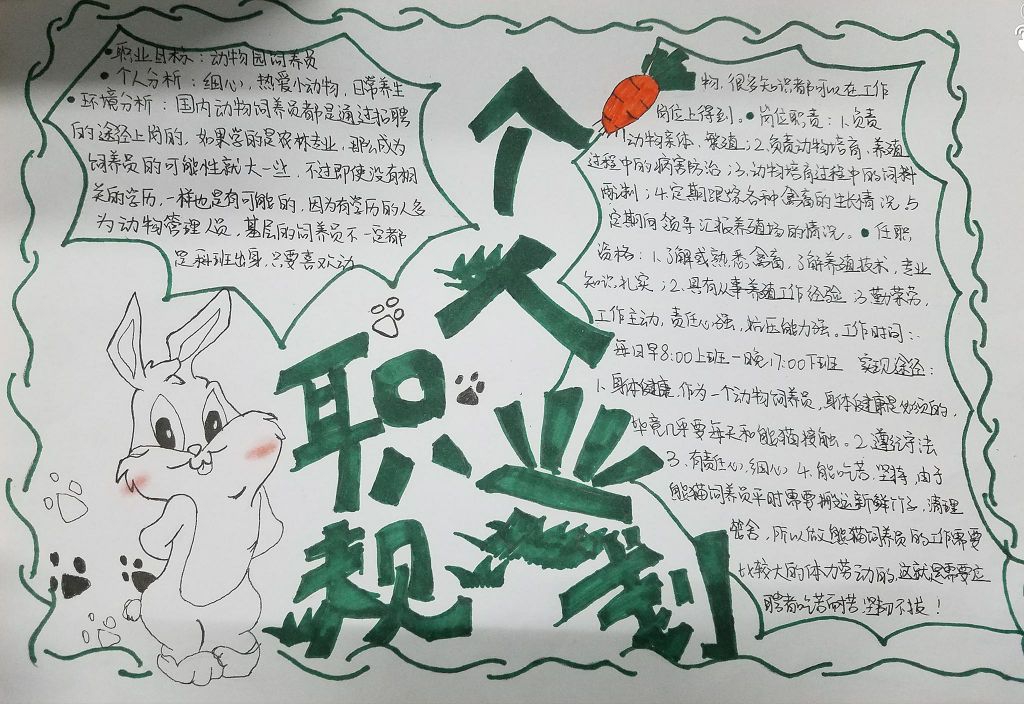 •职业目标：动物园饲养员
•个人分析：细心，热爱小动物，日常养生
•环境分析：国内动物饲养员都是通过招聘
的途径上岗的，如果学的是农林专业，那么成为
饲养员的可能性就大一些，不过即使没有相
关的学历，一样也是有可能的，因为有学历的人多
为动物管理人员，基层的饲养员不一定都
是科班出身，只要喜欢动
个人
职业
规划
物，很多知识都可以在工作
岗位上得到。•岗位职责：1.负责
动物亲体、繁殖；2.负责动物培育、养殖
过程中的病害防治；3.动物培育过程中的饲料
两制；4.定期跟踪各种禽畜的生长情况与
定期向领导汇报养殖场的情况。•任职
资格：1.了解或熟悉禽畜，了解养殖技术，专业
知识扎实；2.具有从事养殖工作经验 3.勤荣劳，
工作主动，责任心强，抗压能力强。工作时间：
每日早8:00上班一晚17:00下班 实现途径：
1.身体健康，作为一个动物饲养员，身体健康是必须的，
毕竟几乎要每天和熊猫接触。2.遵纪守法
3.有责任心，细心 4.能吃苦，坚持，由于
熊猫饲养员平时需要搬运新鲜竹子，清理
笼舍，所以做熊猫饲养员的工作需要
比较大的体力劳动的，这就是需要应
聘者吃苦耐苦，坚韧不拔！